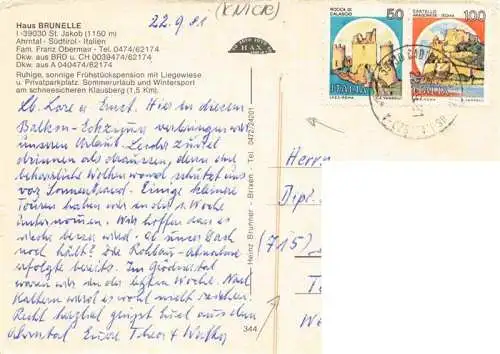 22.9.81
(KNICK)
Haus BRUNELLE
I-39030 St. Jakob (1150 m)
Ahrntal - Südtirol - Italien
Fam. Franz Obermair - Tel. 0474/62174
Dkw. aus BRD u. CH 0039474/62174
Dkw. aus A 040474/62174
Ruhige, sonnige Frühstückspension mit Liegewiese
u. Privatparkplatz. Sommerurlaub und Wintersport
am schneesicheren Klausberg (1,5 Km).
Lb. Lore u. Ernst. Hier in diesem
Balkon-Eckzimmer verbringen wir
unseren Urlaub. Leider zuviel
drinnen als draussen, denn eine
beharrliche Wolken schützt uns
vor Sonnenbrand. Einige kleinere
Touren haben wir in der 1. Woche
unternommen. Wir hoffen dass es
wieder besser wird. Ob unser Dach
noch hält? Die Rohbau-Abnahme
erfolgte bereits. Im Grödnertal
waren wir in der letzten Woche. Nach
Kaltern wird es wohl nicht reichen.
Recht herzlich grüsst Euch aus dem
Ahrntal Eure Theo u.
Heinz Brunner - Brixen - Tel. 0472/24201
344
ROCCA DI
CALASCIO
50
ITALIA
CASTELLO
ARAGONESE - ISCHIA
100
ITALIA
(715)
Dipl.